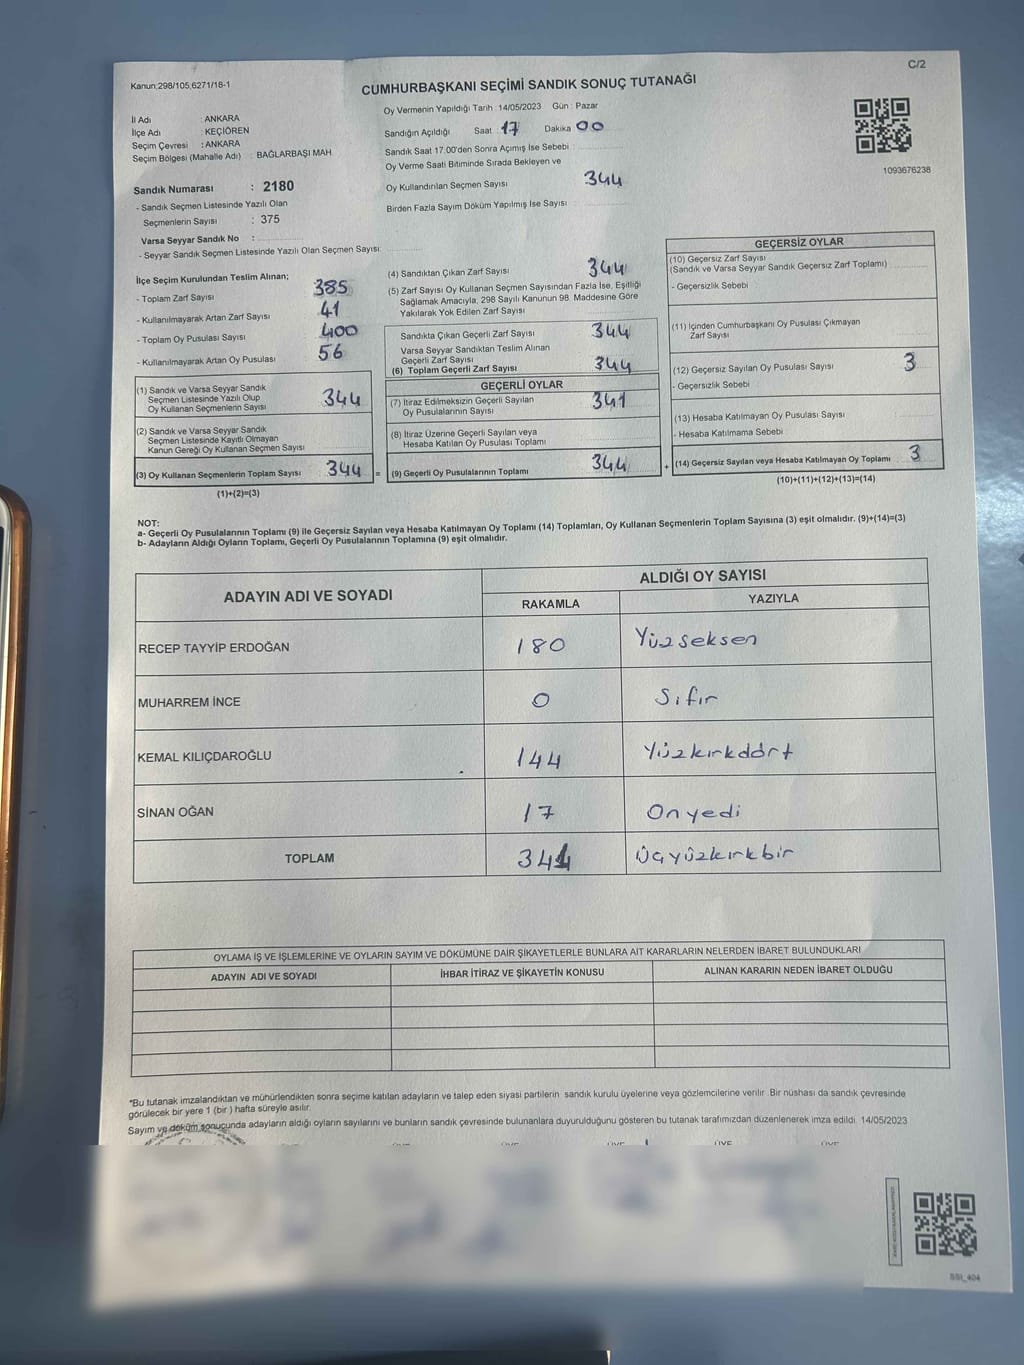 C/2
Kanun;298/105,6271/18-1
CUMHURBAŞKANI SEÇİMİ SANDIK SONUÇ TUTANAĞI
İl Adı : ANKARA
İlçe Adı : KEÇİÖREN
Seçim Çevresi : ANKARA
Seçim Bölgesi (Mahalle Adı) : BAĞLARBAŞI MAH.
Sandık Numarası : 2180
- Sandık Seçmen Listesinde Yazılı Olan
Seçmenlerin Sayısı : 375
Varsa Seyyar Sandık No :
- Seyyar Sandık Seçmen Listesinde Yazılı Olan Seçmen Sayısı:
Oy Vermenin Yapıldığı Tarih : 14/05/2023 Gün : Pazar
Sandığın Açıldığı Saat : 17 Dakika 00
Sandık Saat 17.00'den Sonra Açımış İse Sebebi :
Oy Verme Saati Bitiminde Sırada Bekleyen ve
Oy Kullandırılan Seçmen Sayısı 344
Birden Fazla Sayım Döküm Yapılmış İse Sayısı :
1093676238
İlçe Seçim Kurulundan Teslim Alınan;
- Toplam Zarf Sayısı 385
- Kullanılmayarak Artan Zarf Sayısı 41
- Toplam Oy Pusulası Sayısı 400
- Kullanılmayarak Artan Oy Pusulası 56
(1) Sandık ve Varsa Seyyar Sandık
Seçmen Listesinde Yazılı Olup
Oy Kullanan Seçmenlerin Sayısı 344
(2) Sandık ve Varsa Seyyar Sandık
Seçmen Listesinde Kayıtlı Olmayan
Kanun Gereği Oy Kullanan Seçmen Sayısı
(3) Oy Kullanan Seçmenlerin Toplam Sayısı 344 =
(1)+(2)=(3)
(4) Sandıktan Çıkan Zarf Sayısı 344
(5) Zarf Sayısı Oy Kullanan Seçmen Sayısından Fazla İse, Eşitliği
Sağlamak Amacıyla, 298 Sayılı Kanunun 98. Maddesine Göre
Yakılarak Yok Edilen Zarf Sayısı
Sandıkta Çıkan Geçerli Zarf Sayısı 344
Varsa Seyyar Sandıktan Teslim Alınan
Geçerli Zarf Sayısı
(6) Toplam Geçerli Zarf Sayısı 344
GEÇERLİ OYLAR
(7) İtiraz Edilmeksizin Geçerli Sayılan
Oy Pusulalarının Sayısı 341
(8) İtiraz Üzerine Geçerli Sayılan veya
Hesaba Katılan Oy Pusulası Toplamı
(9) Geçerli Oy Pusulalarının Toplamı 344 +
GEÇERSİZ OYLAR
(10) Geçersiz Zarf Sayısı
(Sandık ve Varsa Seyyar Sandık Geçersiz Zarf Toplamı)
- Geçersizlik Sebebi
(11) İçinden Cumhurbaşkanı Oy Pusulası Çıkmayan
Zarf Sayısı
(12) Geçersiz Sayılan Oy Pusulası Sayısı 3
- Geçersizlik Sebebi
(13) Hesaba Katılmayan Oy Pusulası Sayısı
- Hesaba Katılmama Sebebi
(14) Geçersiz Sayılan veya Hesaba Katılmayan Oy Toplamı 3
(10)+(11)+(12)+(13)=(14)
NOT:
a- Geçerli Oy Pusulalarının Toplamı (9) ile Geçersiz Sayılan veya Hesaba Katılmayan Oy Toplamı (14) Toplamları, Oy Kullanan Seçmenlerin Toplam Sayısına (3) eşit olmalıdır. (9)+(14)=(3)
b- Adayların Aldığı Oyların Toplamı, Geçerli Oy Pusulalarının Toplamına (9) eşit olmalıdır.
ADAYIN ADI VE SOYADI ALDIĞI OY SAYISI
RAKAMLA YAZIYLA
RECEP TAYYİP ERDOĞAN 180 Yüzseksen
MUHARREM İNCE 0 Sıfır
KEMAL KILIÇDAROĞLU 144 Yüzkırkdört
SİNAN OĞAN 17 Onyedi
TOPLAM 341 Üçyüzkırkbir
OYLAMA İŞ VE İŞLEMLERİNE VE OYLARIN SAYIM VE DÖKÜMÜNE DAİR ŞİKAYETLERLE BUNLARA AİT KARARLARIN NELERDEN İBARET BULUNDUKLARI
ADAYIN ADI VE SOYADI İHBAR İTİRAZ VE ŞİKAYETİN KONUSU ALINAN KARARIN NEDEN İBARET OLDUĞU
*Bu tutanak imzalandıktan ve mühürlendikten sonra seçime katılan adayların ve talep eden siyasi partilerin sandık kurulu üyelerine veya gözlemcilerine verilir. Bir nüshası da sandık çevresinde
görülecek bir yere 1 (bir) hafta süreyle asılır.
Sayım ve döküm sonucunda adayların aldığı oyların sayılarını ve bunların sandık çevresinde bulunanlara duyurulduğunu gösteren bu tutanak tarafımızdan düzenlenerek imza edildi. 14/05/2023
ÜYE ÜYE ÜYE ÜYE
SSI_404